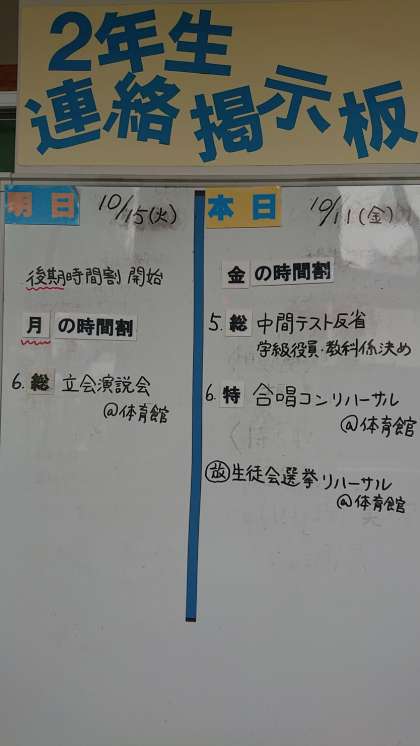 2年生
連絡掲示板
明日 10/15(火)
後期時間割 開始
月の時間割
6.総 立会演説会
@体育館
本日 10/11(金)
金の時間割
5.総 中間テスト反省
学級役員・教科係決め
6.特 合唱コンリハーサル
@体育館
放 生徒会選挙リハーサル
@体育館